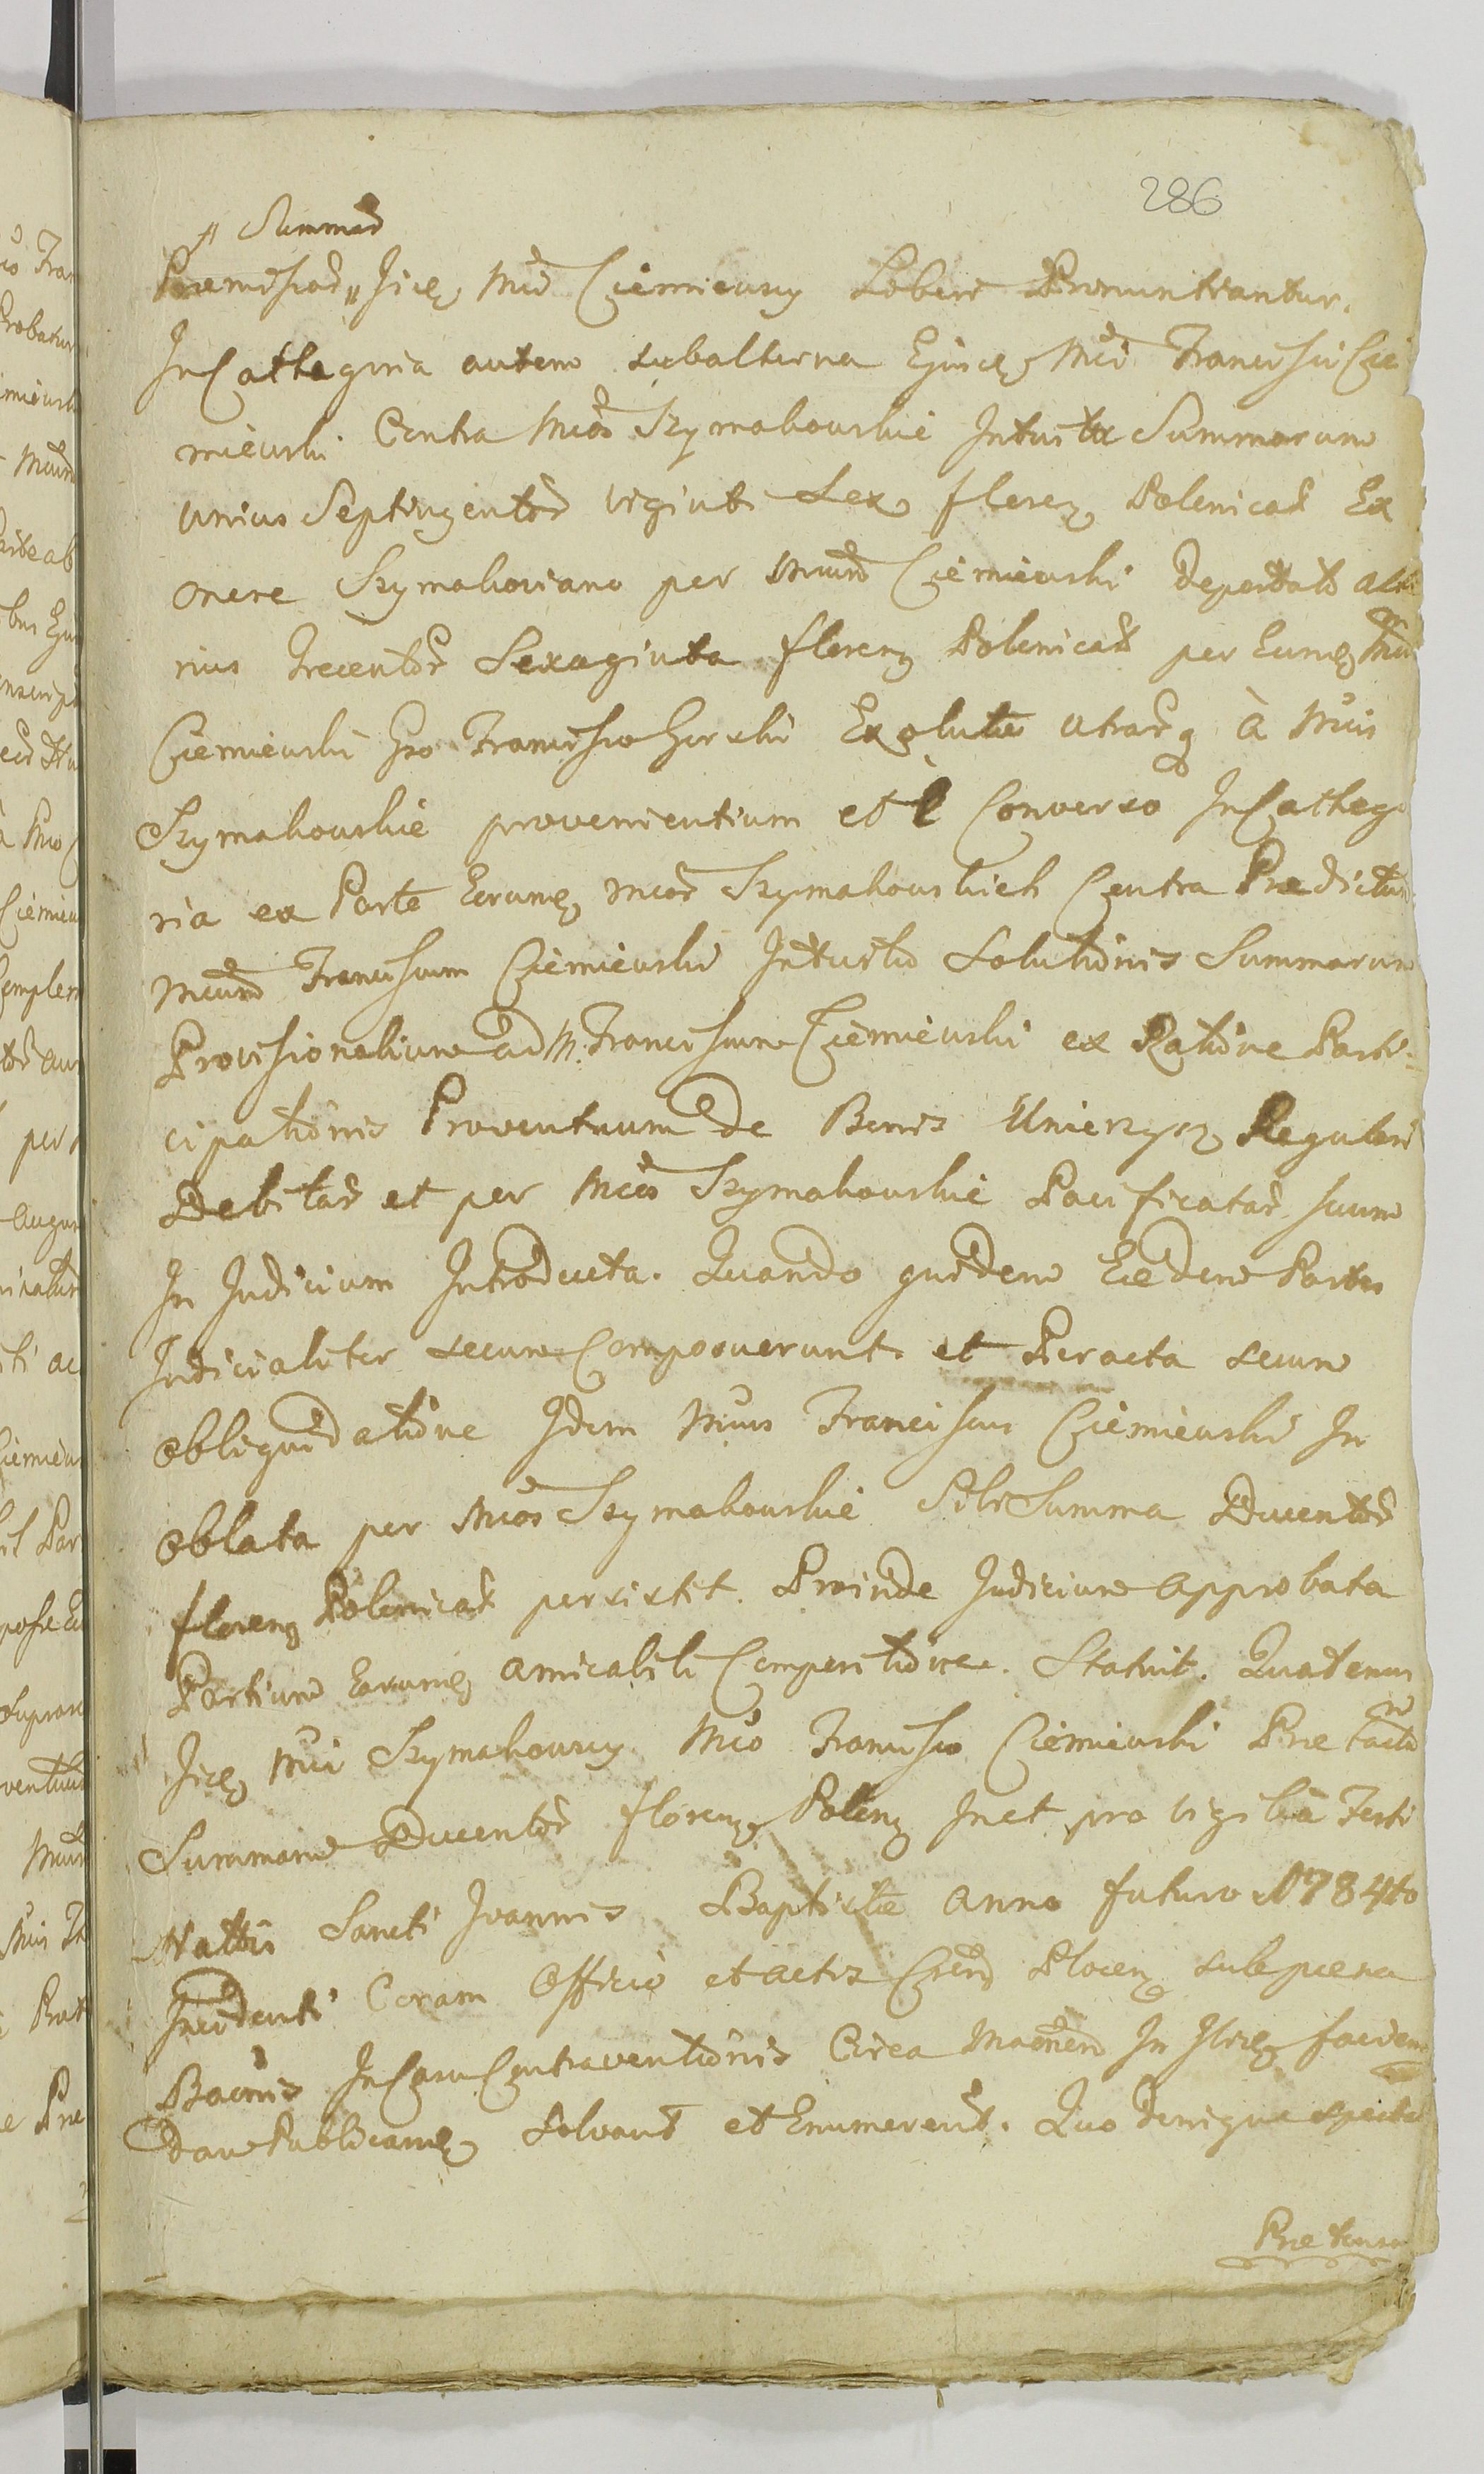 286
" Summar
Premissar " Iidē Mci Ciemieuscy Liberi Pronuntiantur.
In Cathegoria autem subalterna Ejusdē Mci Francisci Cie
mieuski Contra Mcos Szymakouskie Intuitu Summarum
unius Septingentor viginti Sex floren Polonical Ex
onere Szymakoviano per Mcum Ciemieuski deportato alte
rius Trecentor Sexaginta floren Polonical per Eundē Mcum
Ciemieuski Gso Francisco Gorski Exolute utrarq à Mcis
Szymakouskie provenientium et è Converso In Cathego
ria ex Parte Eorundē Mcor Szymakouskich Contra Predictum
Mcum Franciscum Ciemieuski Intuitu Solutionis Summarum
Provisionalium ad M. Franciscum Ciemieuski ex Ratione Parti
cipationis Proventuum de Bonis Unierzysz Reguleri
Debitar et per Mcos Szymakouskie Pacificatar suum
In Judicium Introducta. Quando quidem Eedem Partes
Judicialiter secum Composuerunt et Peracta secum
obliquidatione Idem Mcus Franciscus Ciemieuski In
oblata per Mcos Szymakouskie Sibi Summa Ducentor
floren Polonical persistit. Proinde Judicium approbata
Partium Earundē amicabili Compositione. Statuit. Quatenus
Iidē Mci Szymakouscy Mco Francisco Ciemieuski Pretactam
Summam Ducentor floren Polon In et pro vigilia Festi
Nattis Sancti Joannis Baptiste anno futuro 1784to
Incidenti Coram Officio et actis Cren Plocen sub poena
Bannis In Casu Contraventionis Circa In faciem
dam Publicamē solvant et Enumerent. Quo denique
Pretensu